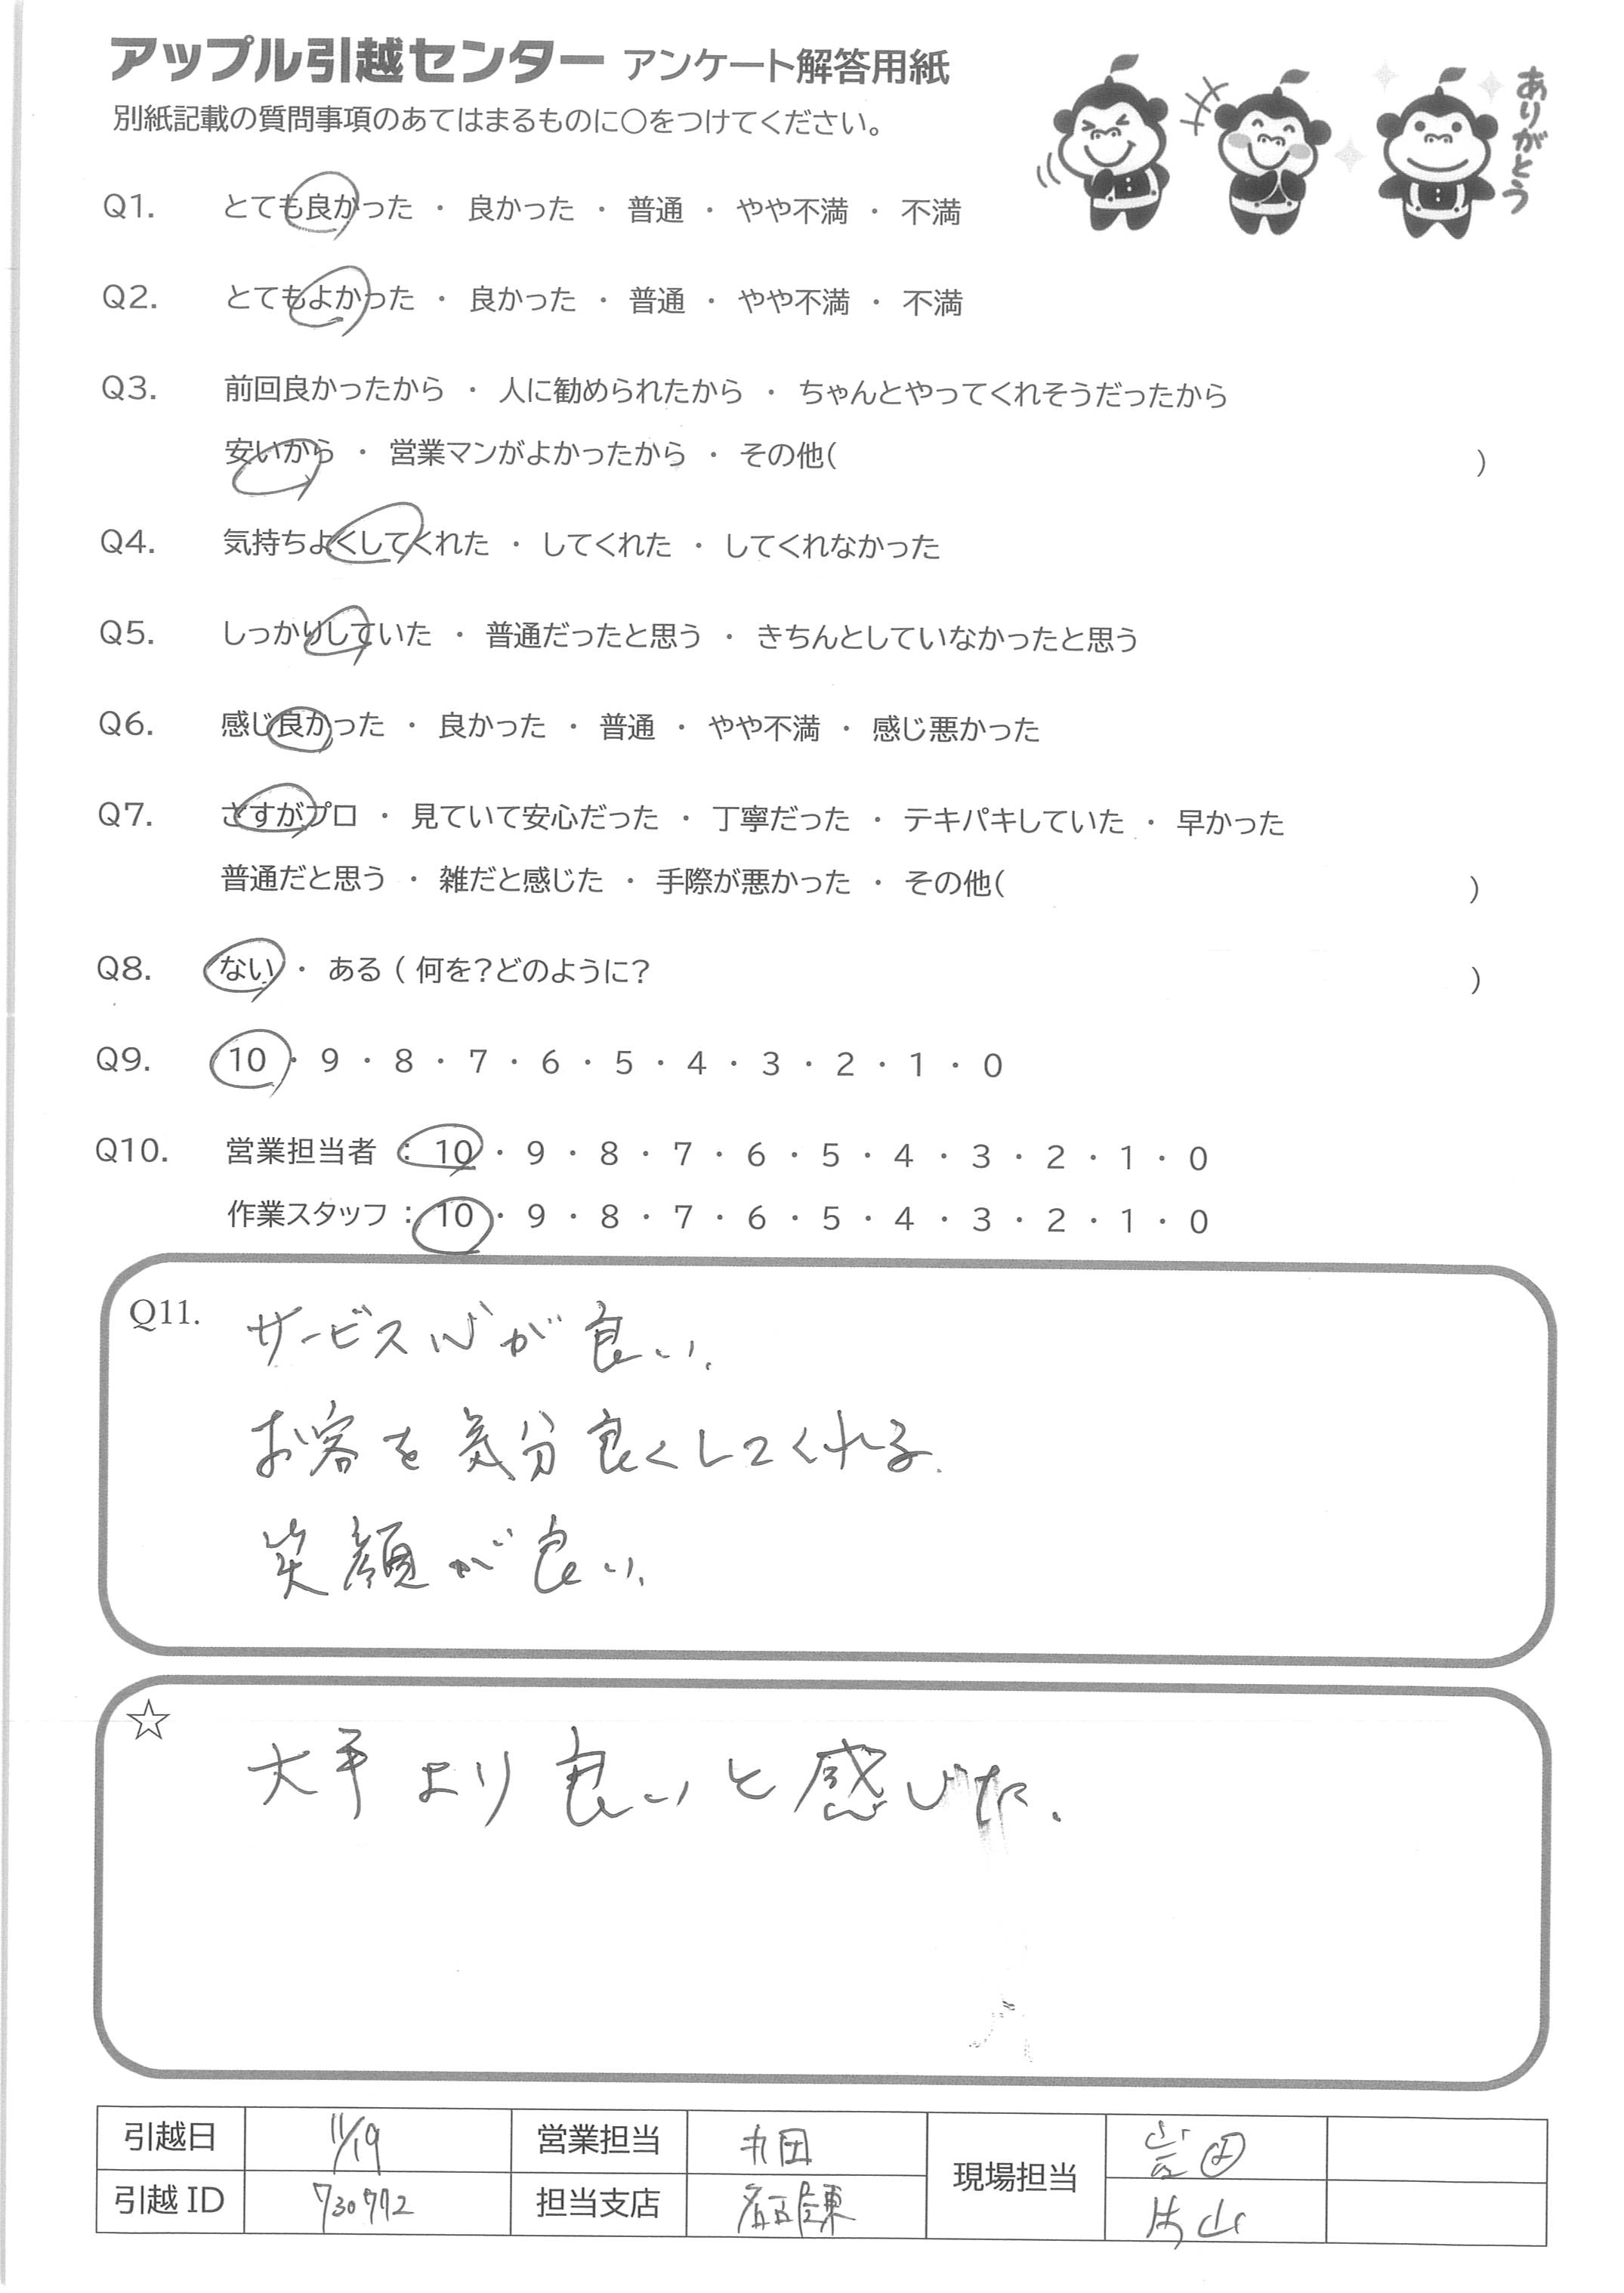 アップル引越センター アンケート解答用紙
別紙記載の質問事項のあてはまるものに○をつけてください。
ありがとう
Q1. とても良かった ・ 良かった ・ 普通 ・ やや不満 ・ 不満
Q2. とてもよかった ・ 良かった ・ 普通 ・ やや不満 ・ 不満
Q3. 前回良かったから ・ 人に勧められたから ・ ちゃんとやってくれそうだったから
安いから ・ 営業マンがよかったから ・ その他( )
Q4. 気持ちよくしてくれた ・ してくれた ・ してくれなかった
Q5. しっかりしていた ・ 普通だったと思う ・ きちんとしていなかったと思う
Q6. 感じ良かった ・ 良かった ・ 普通 ・ やや不満 ・ 感じ悪かった
Q7. さすがプロ ・ 見ていて安心だった ・ 丁寧だった ・ テキパキしていた ・ 早かった
普通だと思う ・ 雑だと感じた ・ 手際が悪かった ・ その他( )
Q8. ない ・ ある ( 何を?どのように? )
Q9. 10 ・ 9 ・ 8 ・ 7 ・ 6 ・ 5 ・ 4 ・ 3 ・ 2 ・ 1 ・ 0
Q10. 営業担当者 : 10 ・ 9 ・ 8 ・ 7 ・ 6 ・ 5 ・ 4 ・ 3 ・ 2 ・ 1 ・ 0
作業スタッフ : 10 ・ 9 ・ 8 ・ 7 ・ 6 ・ 5 ・ 4 ・ 3 ・ 2 ・ 1 ・ 0
Q11. サービス心が良い.
お客を気分良くしてくれる.
笑顔が良い.
☆ 大手より良いと感じた.
引越日 11/19 営業担当 現場担当
引越 ID 730772 担当支店 片山